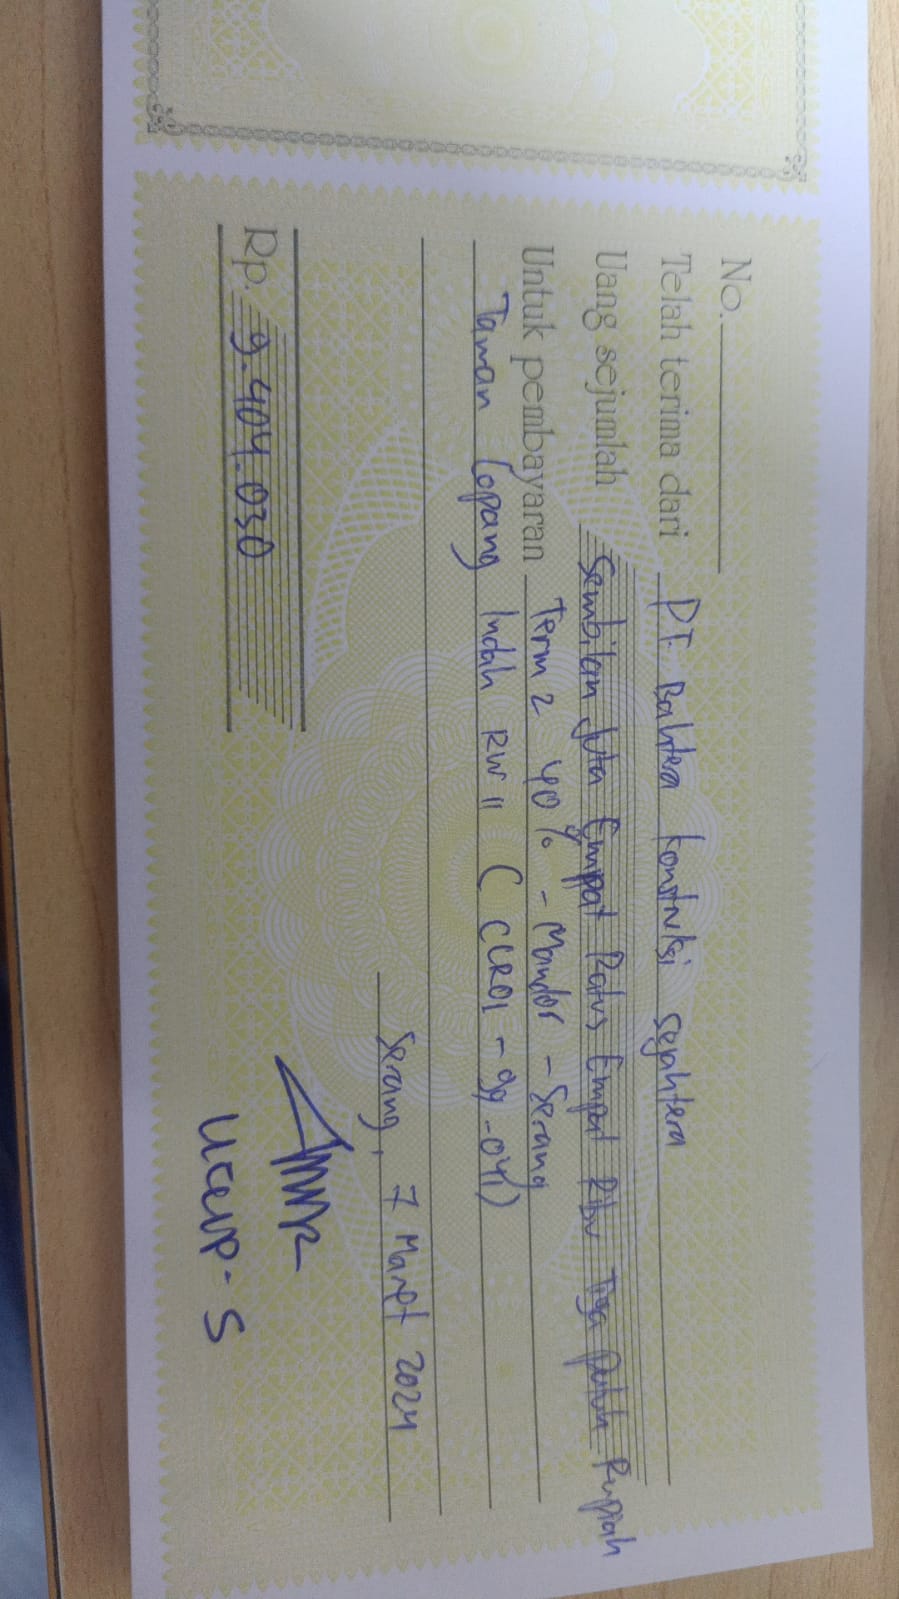 No.
Telah terima dari PT. Bahtera Konstruksi Sejahtera
Uang sejumlah Sembilan Juta Empat Ratus Empat Ribu Tiga Puluh Rupiah
Untuk pembayaran Term 2 40% - Mandor - Serang
Taman Lopang Indah RW 11 (CLR01-99-041)
Serang, 7 Maret 2024
Rp. 9.404.030
Ucup. S